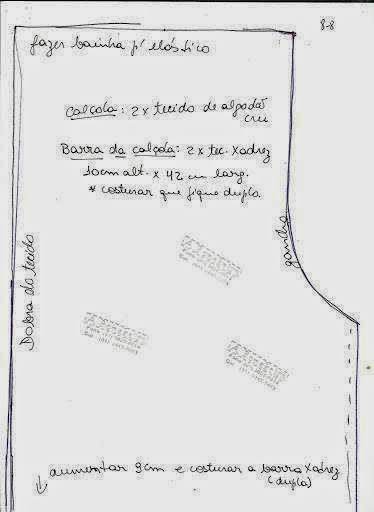 8-8
fazer bainha p/ elástico
Calçola: 2 x tecido de algodão
cru
Barra da calçola: 2 x tec. xadrez
10cm alt. x 42 cm larg.
* costurar que fique dupla.
gancho
Dobra do tecido
aumentar 9cm e costurar a barra xadrez
(dupla)